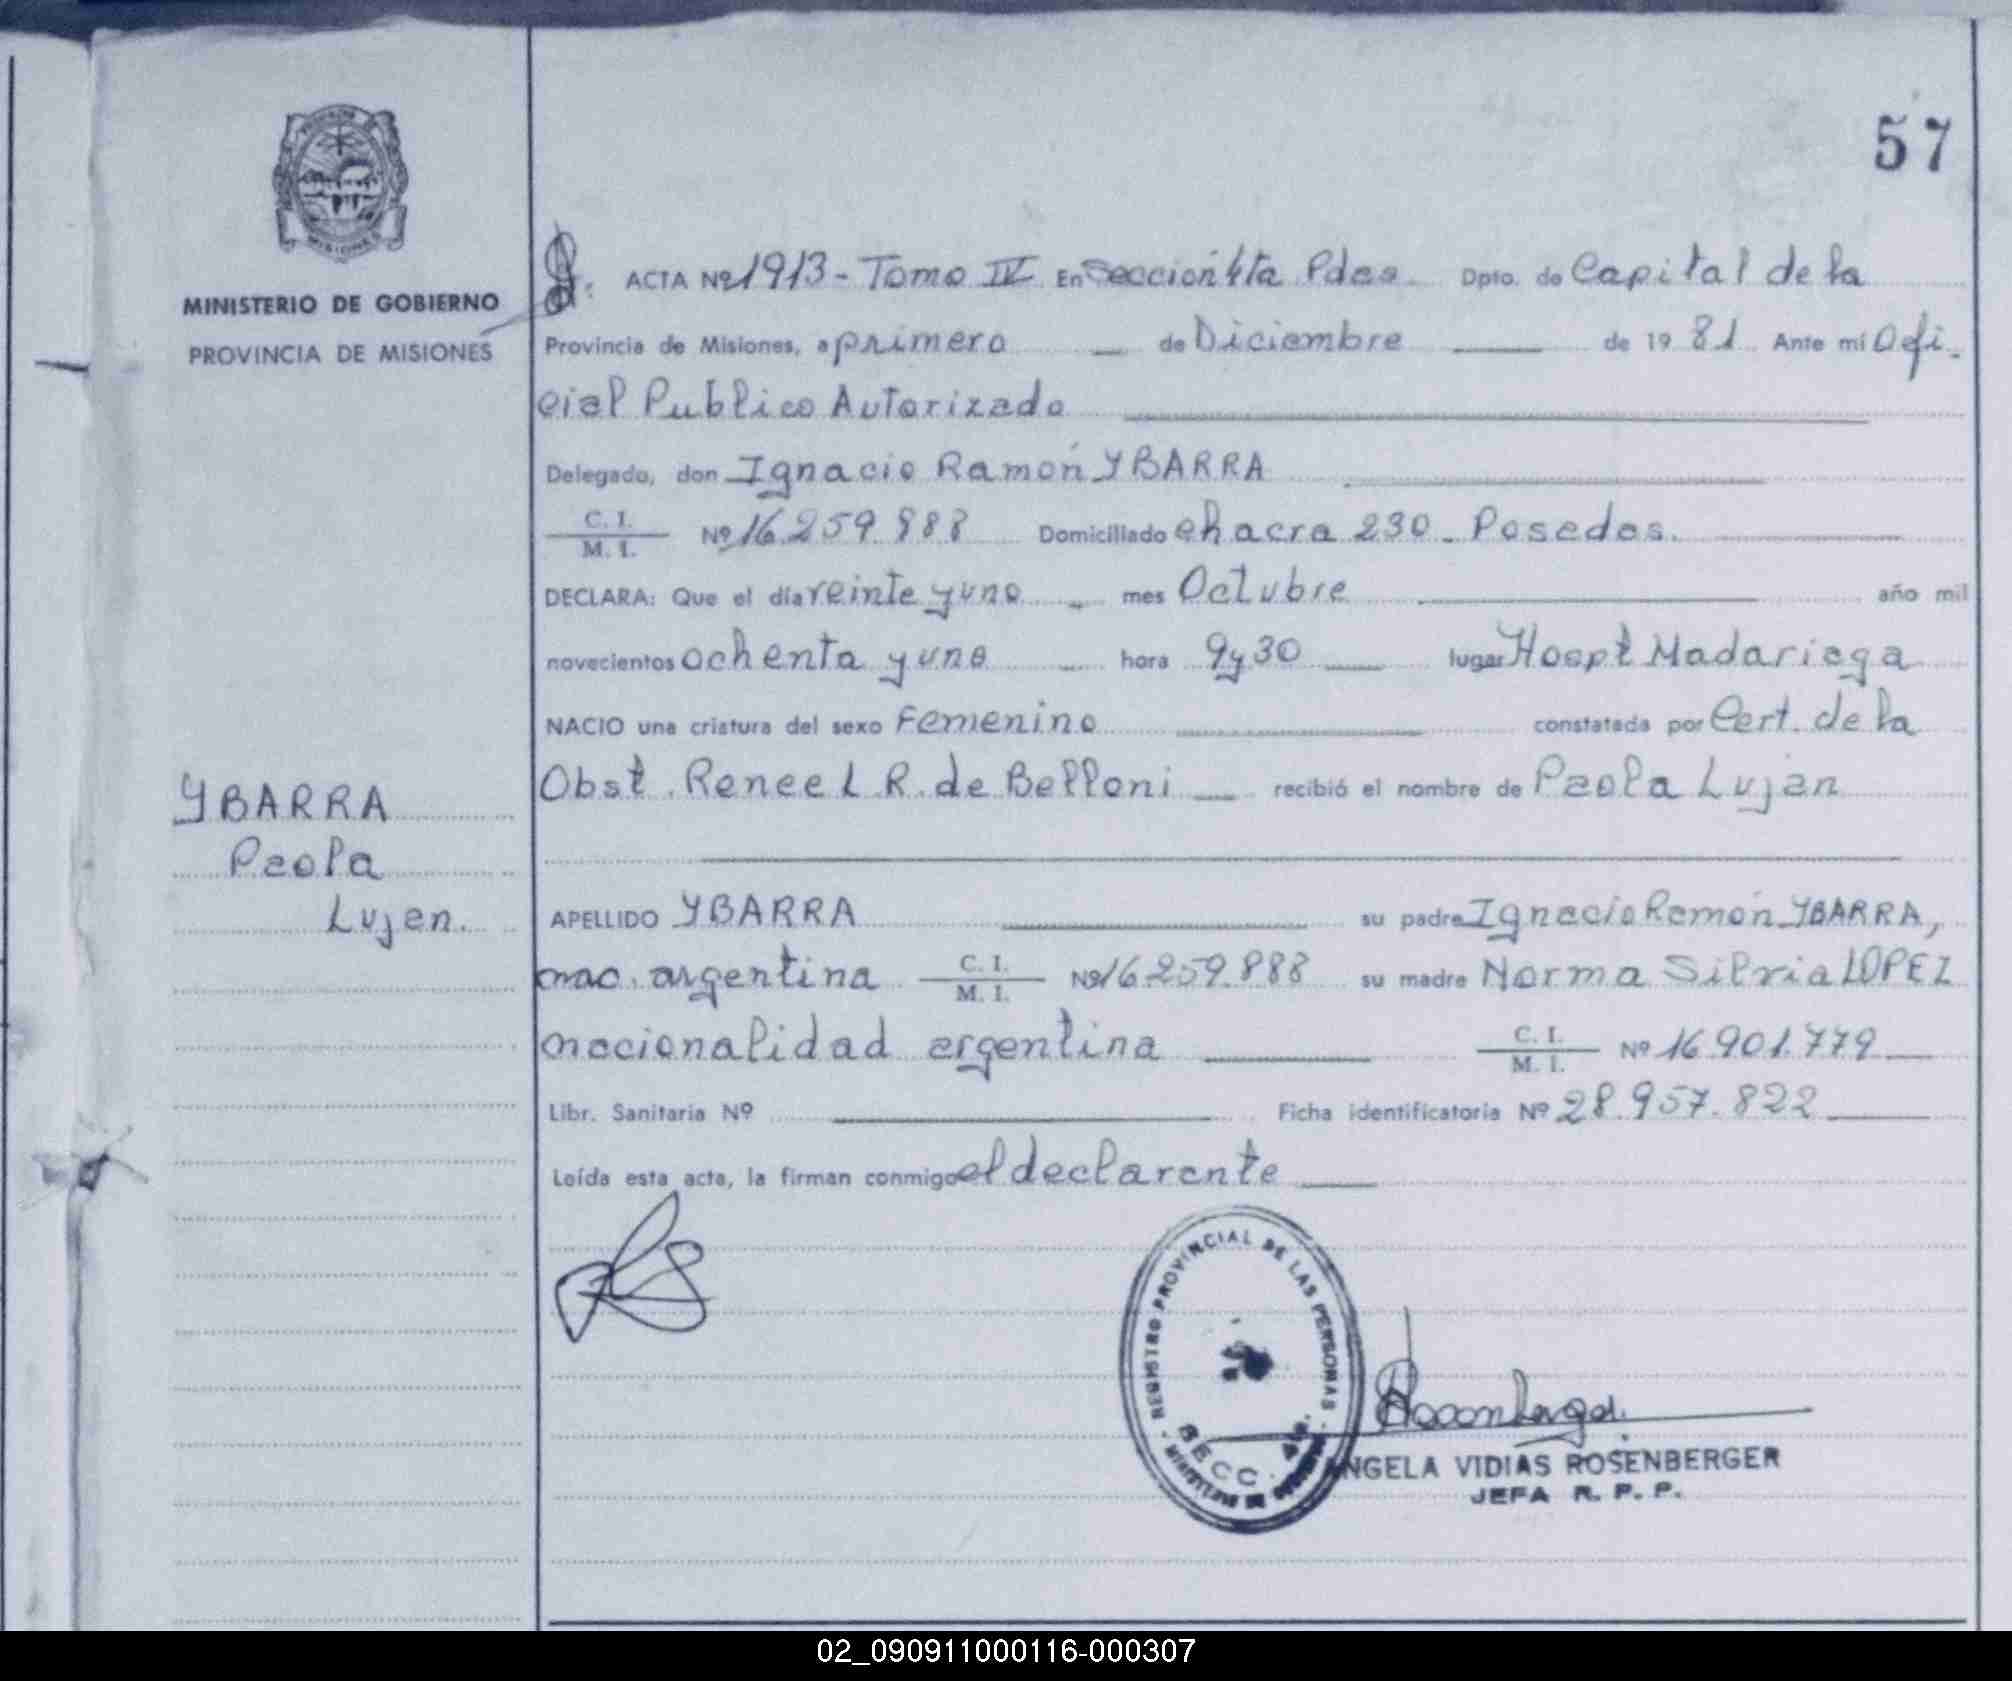 57
MINISTERIO DE GOBIERNO
PROVINCIA DE MISIONES
ACTA Nº 1913 - Tomo IV En Sección 4ta Pdas. Dpto. de Capital de la
Provincia de Misiones, a primero de Diciembre de 19 81 Ante mí Ofi-
cial Publico Autorizado
Delegado, don Ignacio Ramón YBARRA
C. I.
M. I. Nº 16.259.888 Domiciliado chacra 230 - Posadas.
DECLARA: Que el día veinte y uno mes Octubre año mil
novecientos ochenta y uno hora 9 y 30 lugar Hospt Madariaga
NACIO una criatura del sexo Femenino constatada por Cert. de la
Obst. Renee L R. de Belloni recibió el nombre de Paola Lujan
YBARRA
Paola
Lujan.
APELLIDO YBARRA su padre Ignacio Ramón YBARRA,
nac. argentina C. I.
M. I. Nº 16.259.888 su madre Norma Silvia LOPEZ
nacionalidad argentina C. I.
M. I. Nº 16.901.779
Libr. Sanitaria Nº Ficha identificatoria Nº 28.957.822
Leída esta acta, la firman conmigo el declarante
REGISTRO PROVINCIAL DE LAS PERSONAS
SECC. 4ta.
MINISTERIO DE GOBIERNO
ANGELA VIDIAS ROSENBERGER
JEFA R. P. P.
02_090911000116-000307